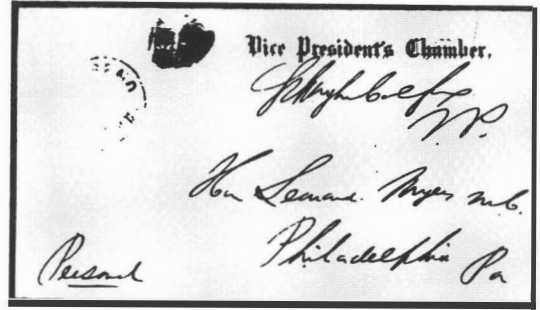 Vice President's Chamber.
Schuyler Colfax
V.P.
Hon Leonard Myers M.C.
Philadelphia Pa
Personal